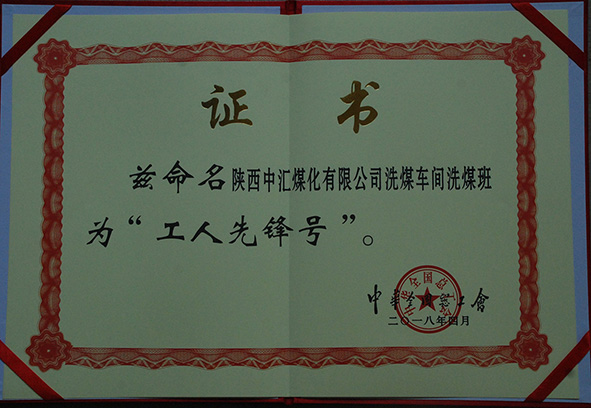 证书
兹命名陕西中汇煤化有限公司洗煤车间洗煤班
为“工人先锋号”。
中华全国总工会
二〇一八年四月